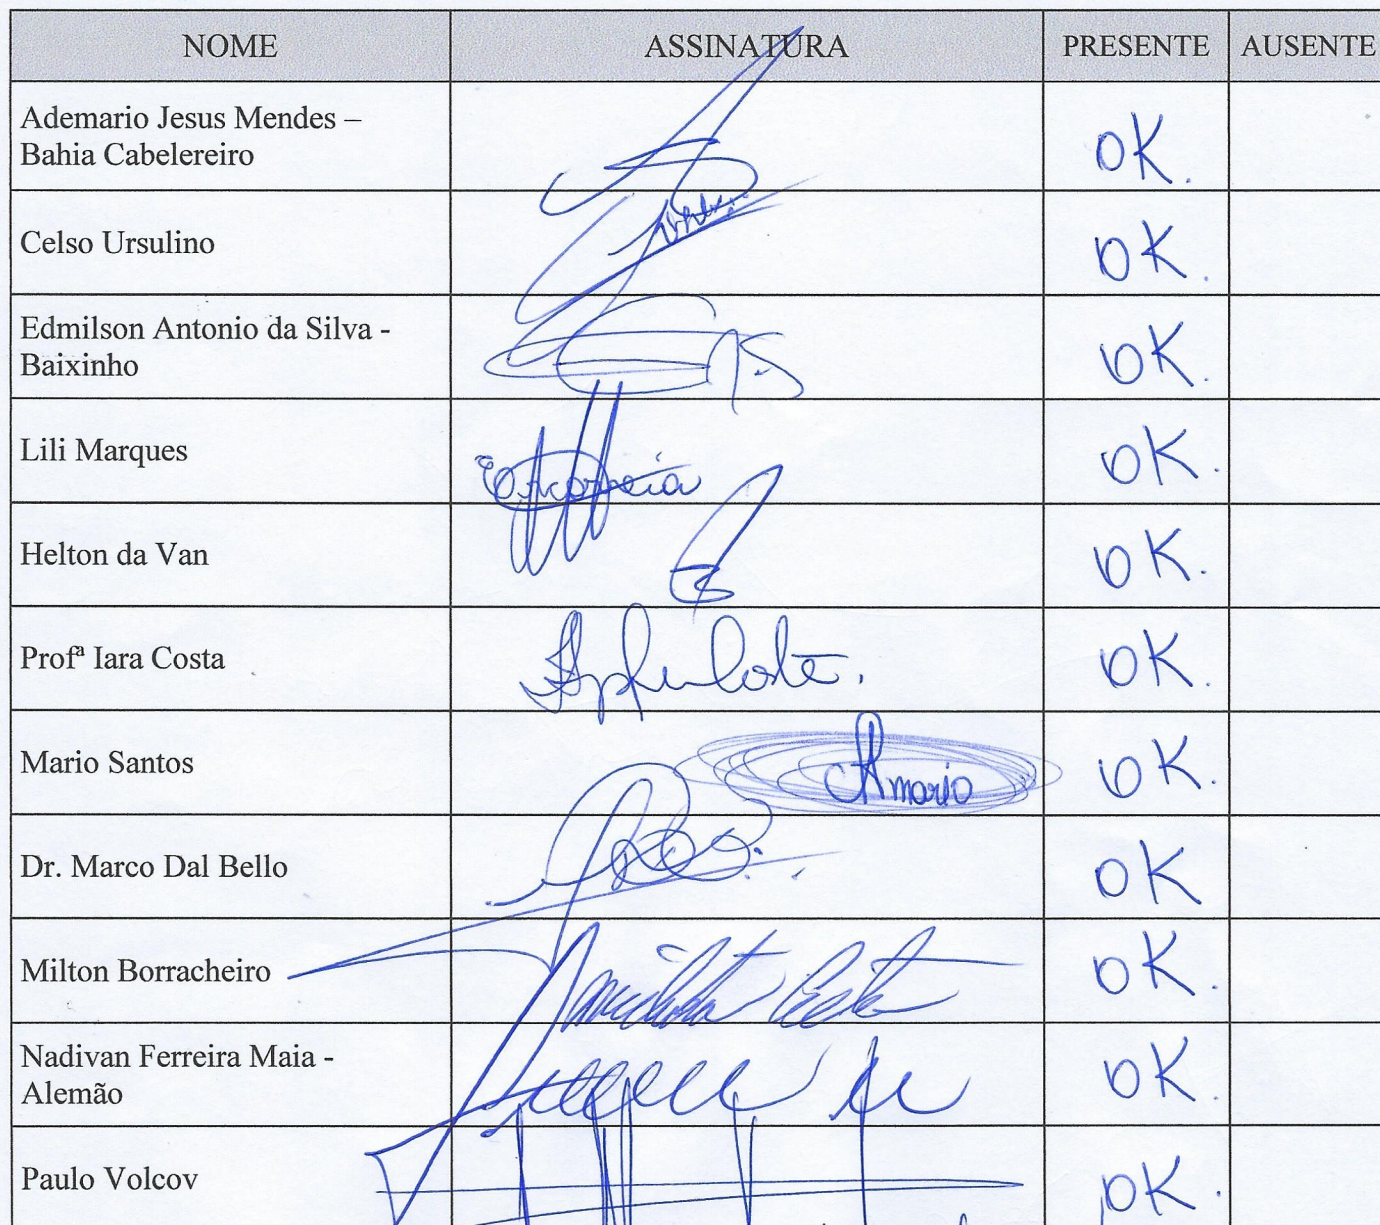 NOME ASSINATURA PRESENTE AUSENTE
Ademario Jesus Mendes –
Bahia Cabelereiro
OK.
Celso Ursulino
OK.
Edmilson Antonio da Silva -
Baixinho
OK.
Lili Marques
OK.
Helton da Van
OK.
Profª Iara Costa
OK.
Mario Santos
Amario
OK.
Dr. Marco Dal Bello
OK
Milton Borracheiro
OK.
Nadivan Ferreira Maia -
Alemão
OK.
Paulo Volcov
OK.